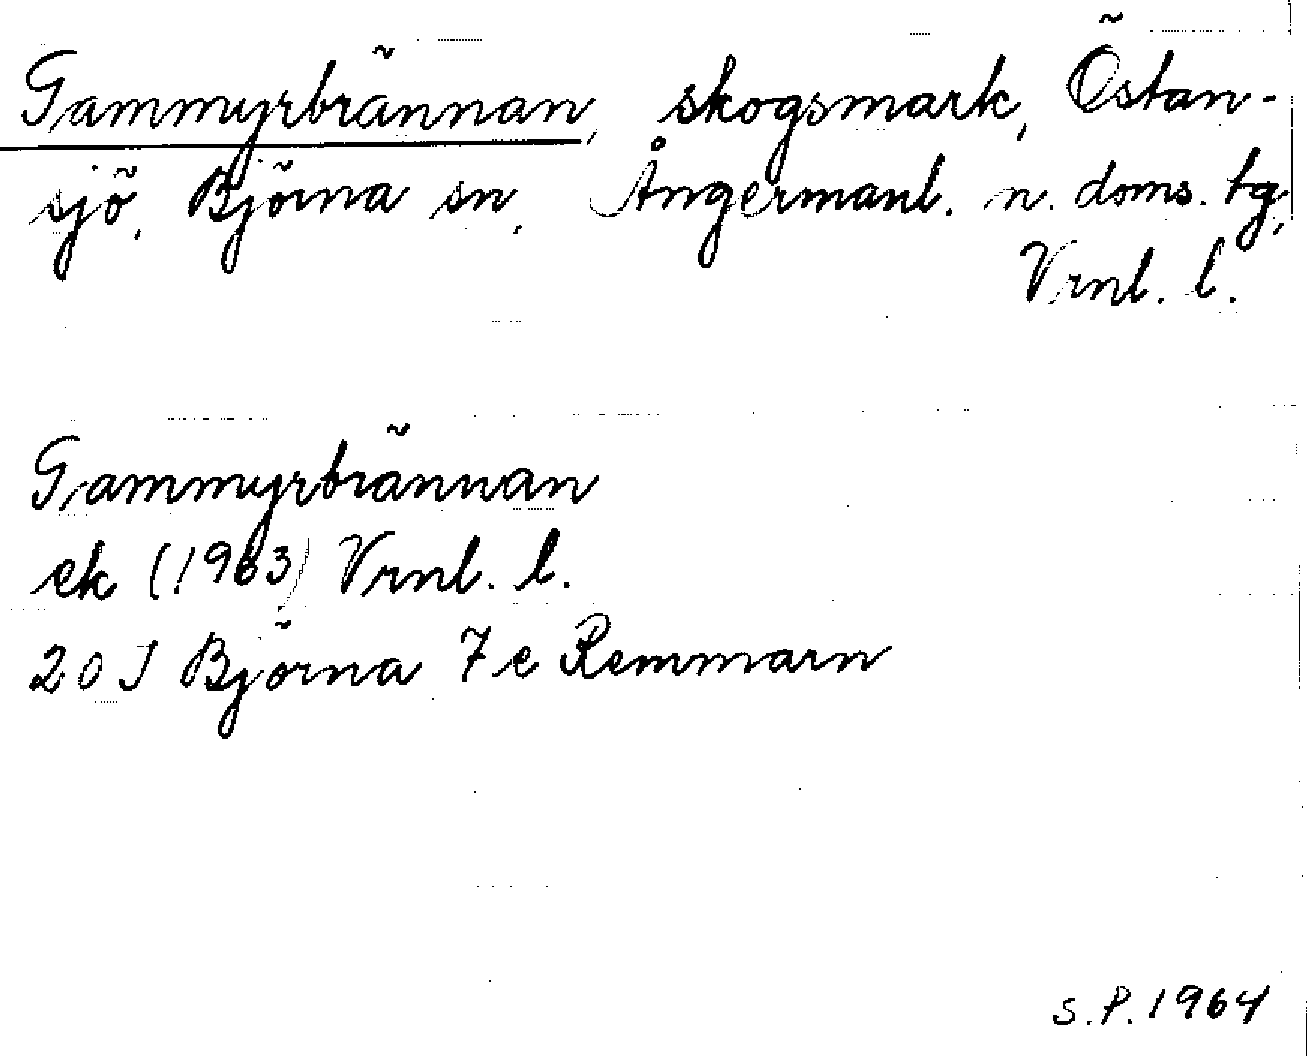 Gammyrbrännan, skogsmark, Östan-
sjö, Björna sn, Ångermanl. n. doms. tg,
Vrnl. l.
Gammyrbrännan
ek (1963) Vrnl. l.
20 J Björna 7 e Remmarn
S.P. 1964